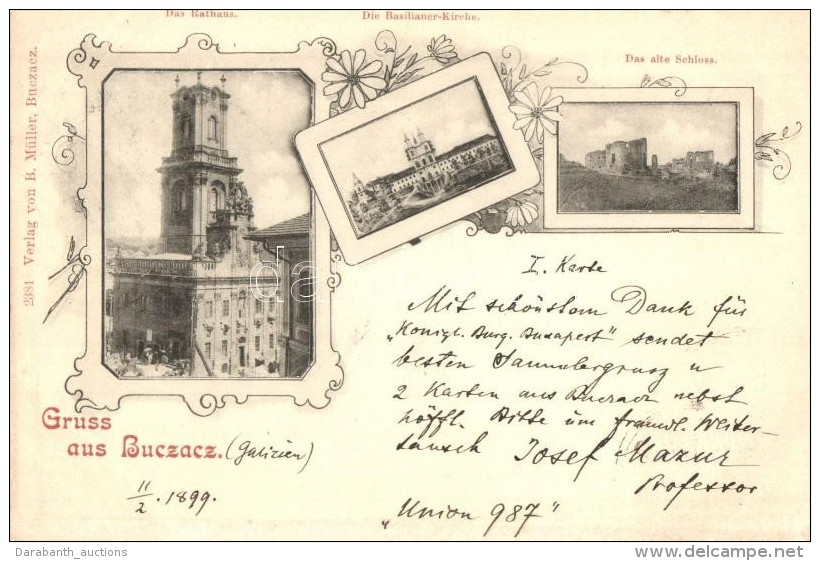 Das Rathaus.
Die Basilianer-Kirche.
Das alte Schloss.
2381 Verlag von B. Müller, Buczacz.
I. Karte
Mit schönstem Dank für
„Königl. Burg. Budapest" sendet
besten Sammlergruss u
2 Karten aus Buczacz nebst
höffl. Bitte um freundl. Weiter-
tausch Josef Mazur
Professor
„Union 987"
Gruss
aus Buczacz. (Galizien)
11/2. 1899.
da
Darabanth_auctions
www.delcampe.net